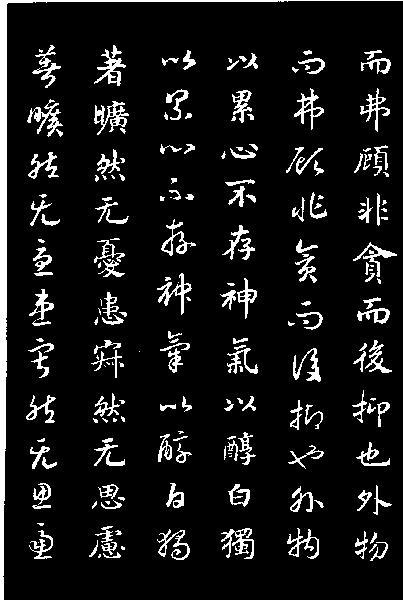 而弗顧非貪而後抑也外物
而弗顧非貪而後抑也外物
以累心不存神氣以醇白獨
以累心不存神氣以醇白獨
著曠然无憂患寂然无思慮
著曠然无憂患寂然无思慮